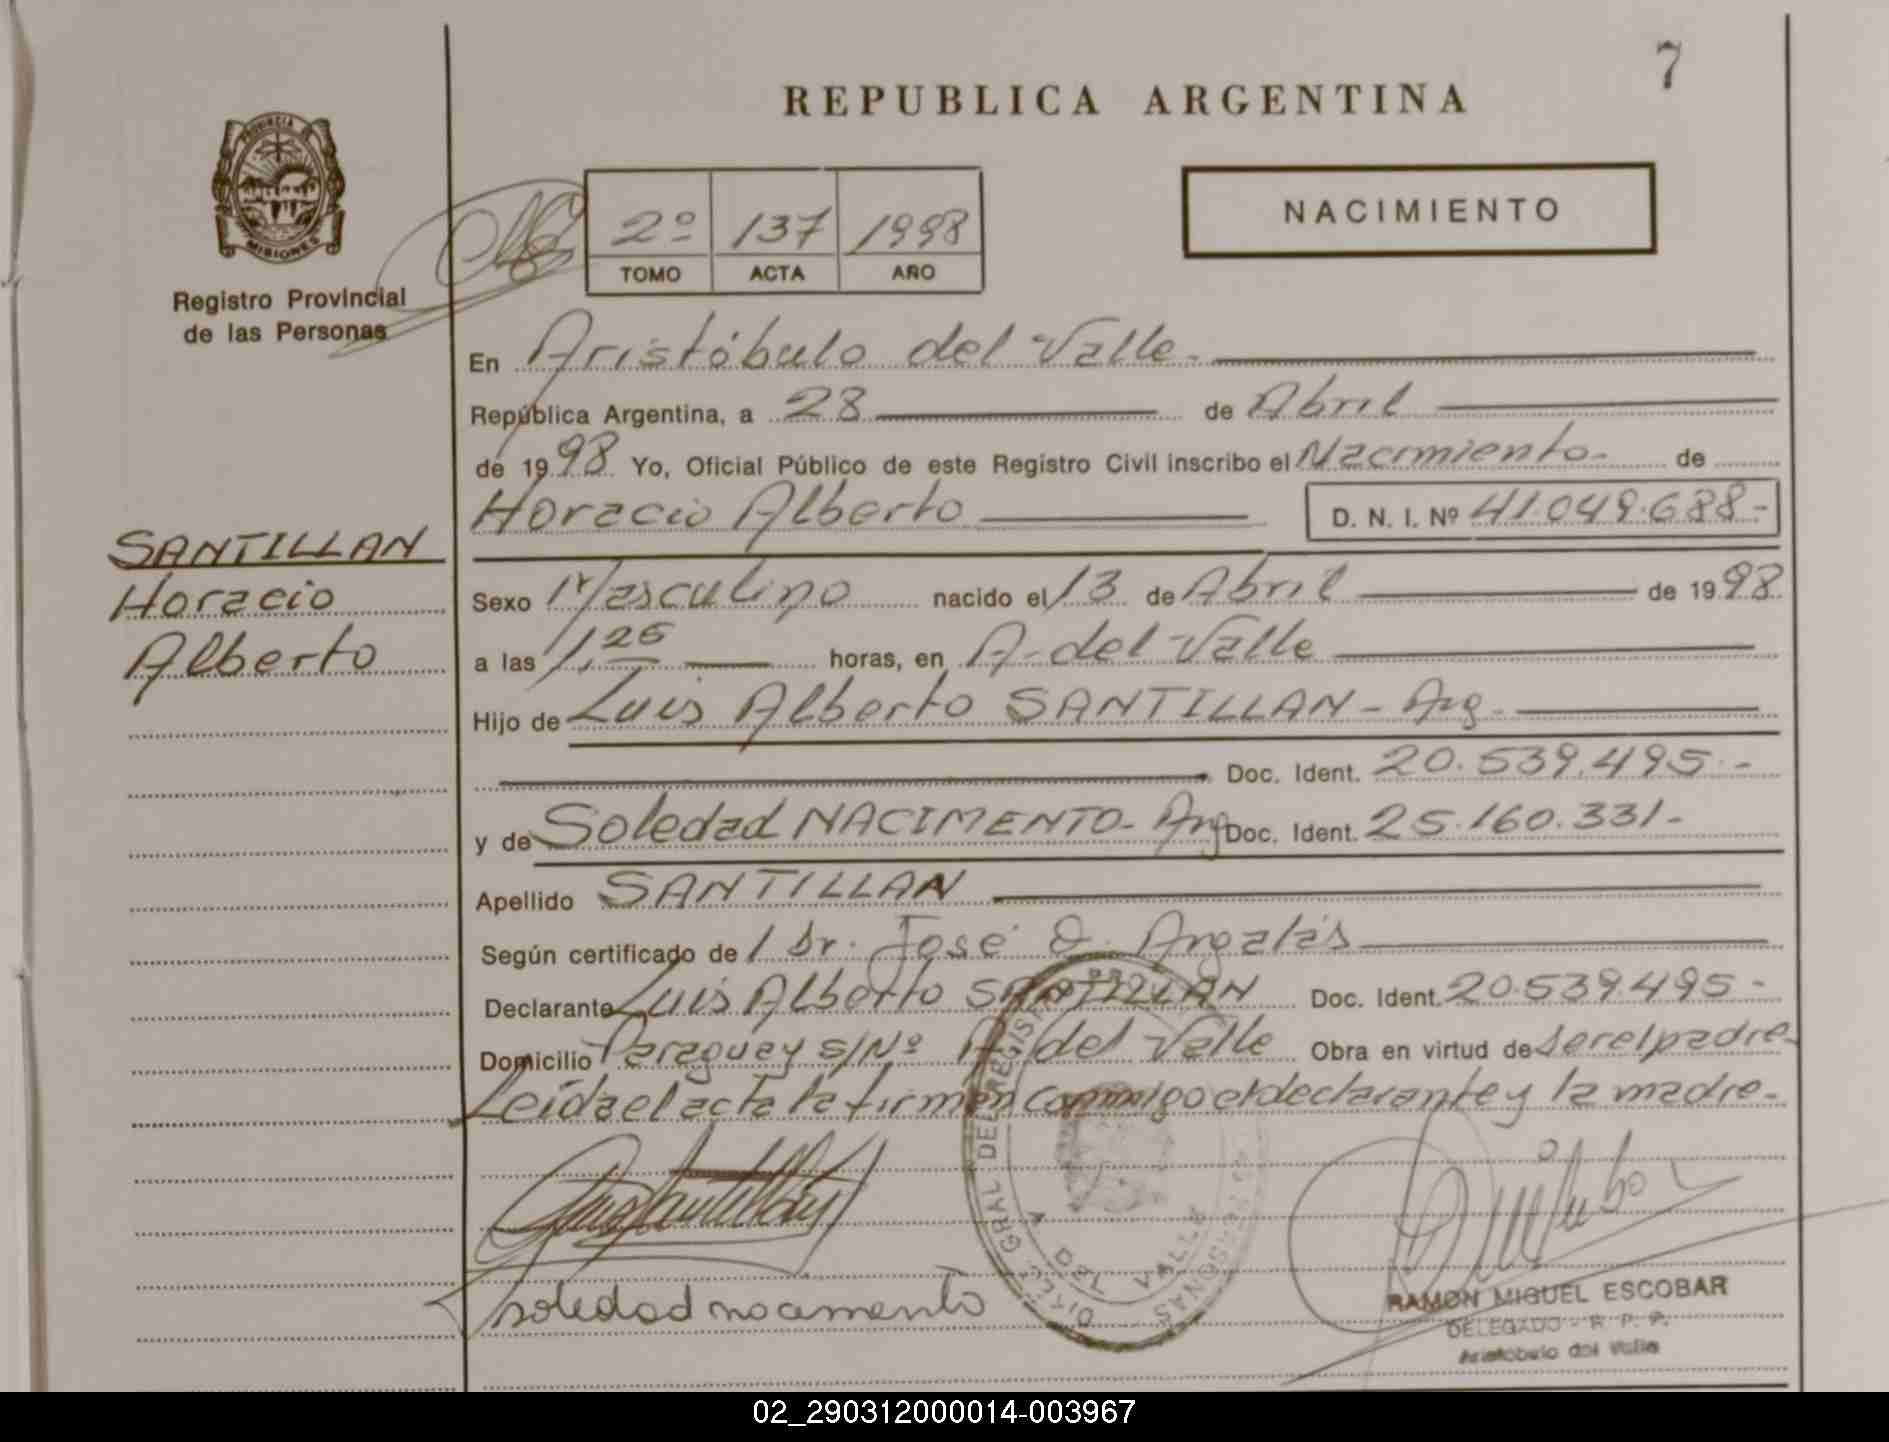 7
REPUBLICA ARGENTINA
PROVINCIA DE
MISIONES
Registro Provincial
de las Personas
2º 137 1998
TOMO ACTA AÑO
NACIMIENTO
En Aristóbulo del Valle.
República Argentina, a 28 de Abril
de 1998 Yo, Oficial Público de este Registro Civil inscribo el Nacimiento de
Horacio Alberto D. N. I. Nº 41.049.688-
SANTILLAN
Horacio
Alberto
Sexo Masculino nacido el 13 de Abril de 1998
a las 1,25 horas, en A. del Valle
Hijo de Luis Alberto SANTILLAN - Arg.
Doc. Ident. 20.539.495.-
y de Soledad NACIMENTO- Arg Doc. Ident. 25.160.331-
Apellido SANTILLAN
Según certificado de l Dr. José O. Argalás
Declarante Luis Alberto SANTILLAN Doc. Ident. 20.539.495-
Domicilio Paraguay s/Nº A. del Valle Obra en virtud de ser el padre-
Leída el acta la firman conmigo el declarante y la madre-
soledad nacimento
DIREC. GRAL. DEL REGISTRO PERSONAS
A. DEL VALLE
RAMON MIGUEL ESCOBAR
DELEGADO - R. P. P.
Aristóbulo del Valle
02_290312000014-003967